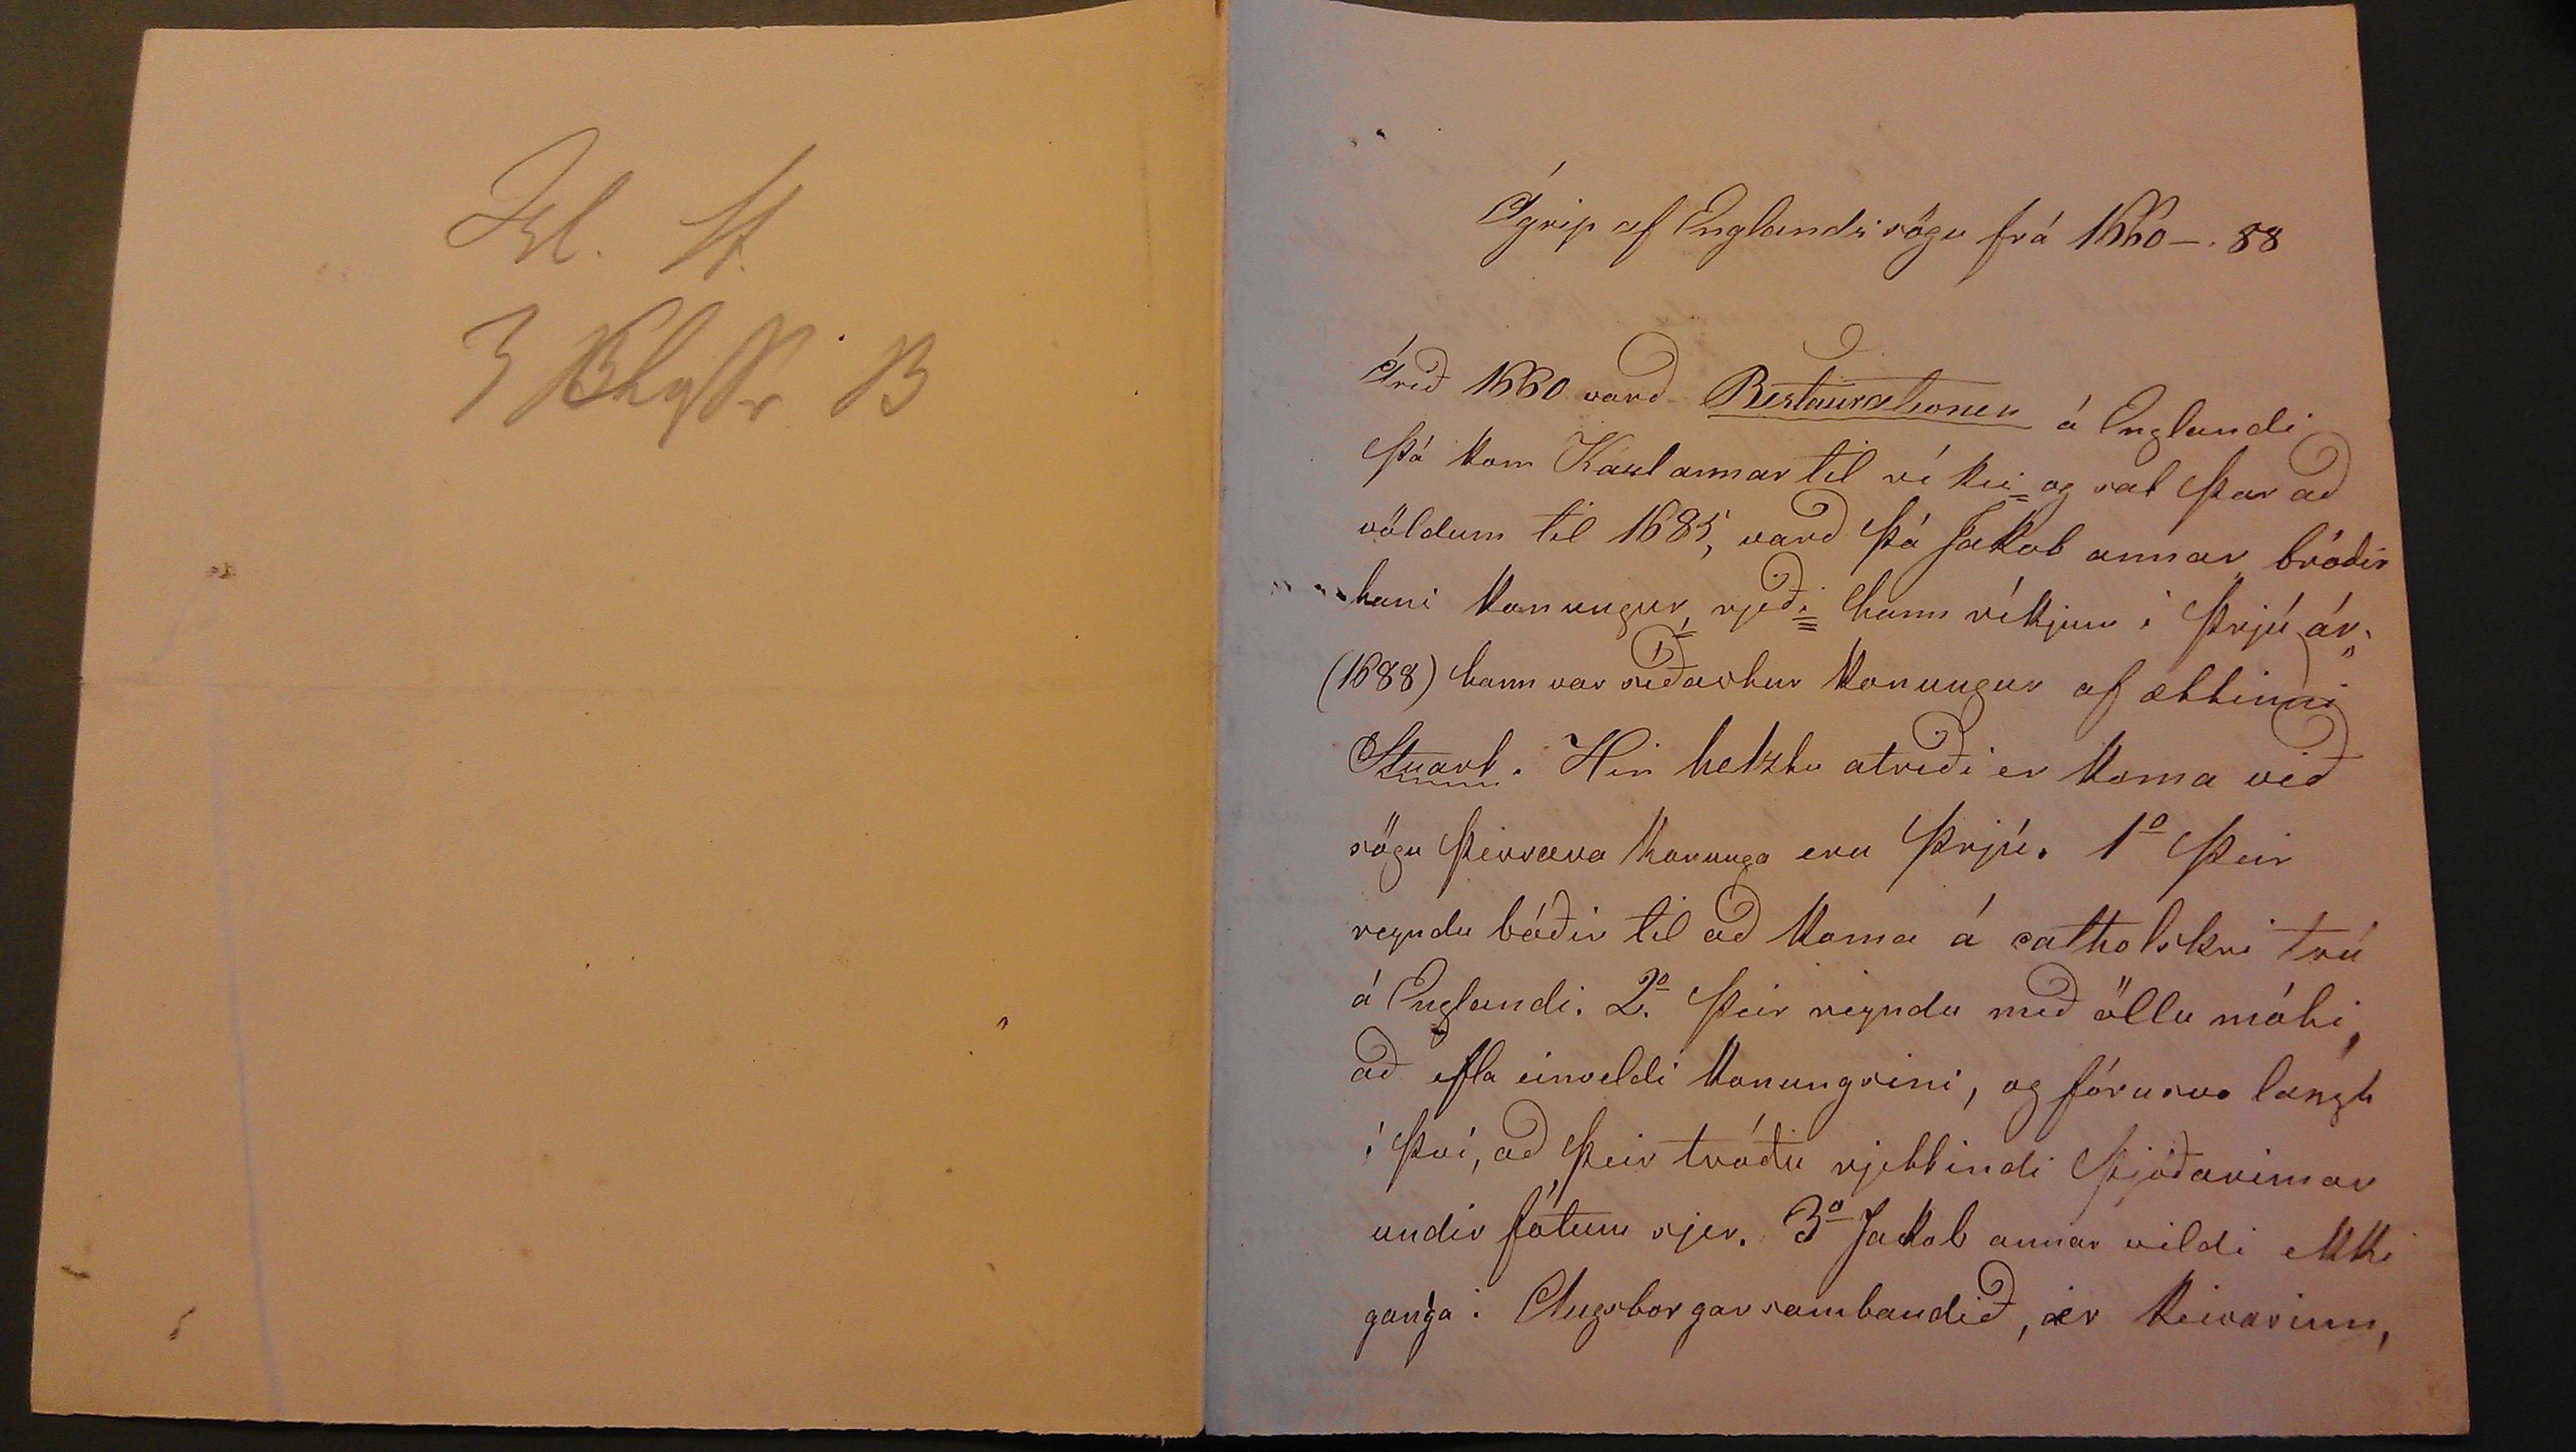 Ísl. st.
3 B
Ágrip af Englands sögu frá 1660 -. 88
Árið 1660 varð Restaurationen á Englandi
þá kom Karl annar til ríkis og sat þar að
völdum til 1685, varð þá Jakob annar bróðir
hans konungur, rjeði hann ríkjum i þrjú ár.
(1688) hann var síðastur konungur af ættinni
Stuart. Hin helztu atriði er koma við
sögu þessara konunga eru þrjú. 1º þeir
reyndu báðir til að koma á catholskri trú
á Englandi. 2º þeir reyndu með öllu móti,
að efla einveldi konungsins, og fóru svo langt
í því, að þeir tróðu rjettindi þjóðarinnar
undir fótum sjer. 3º Jakob annar vildi ekki
ganga i Augsborgarsambandið, er keisarinn,